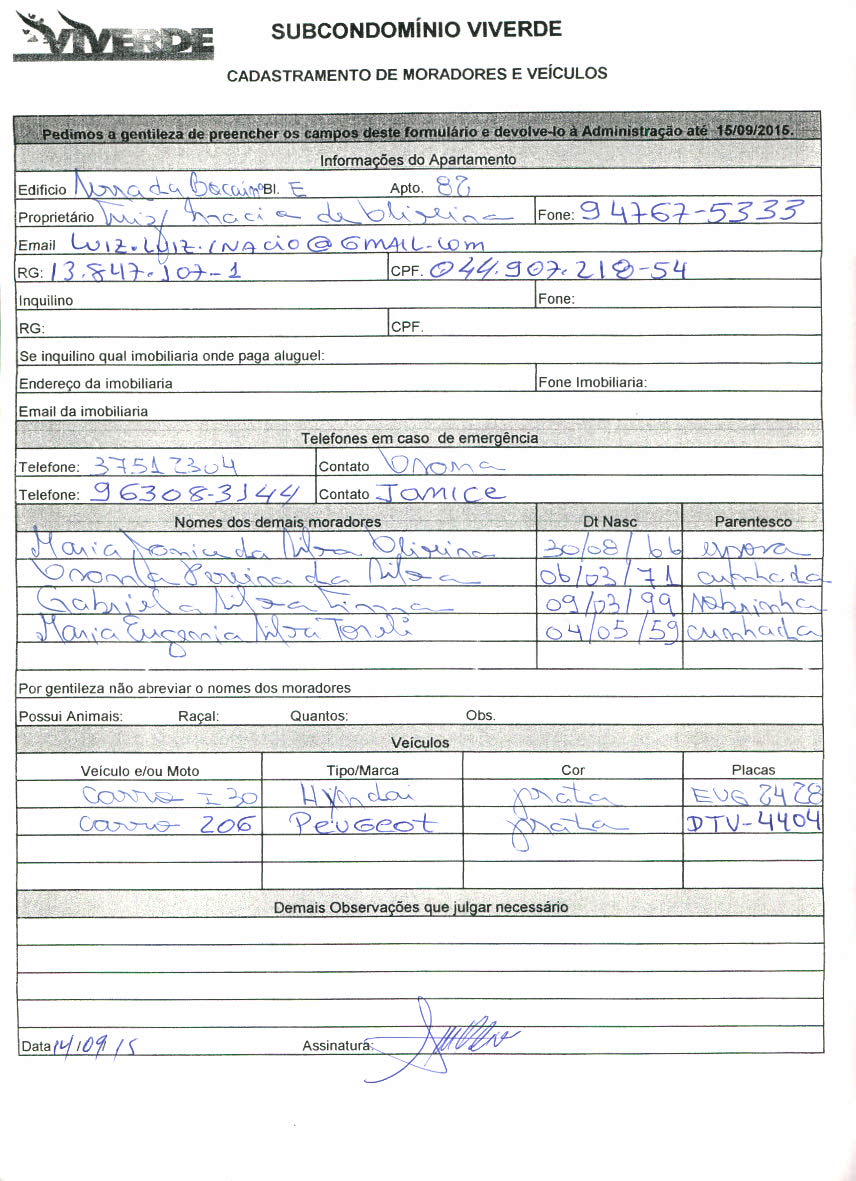 VIVERDE
SUBCONDOMÍNIO VIVERDE
CADASTRAMENTO DE MORADORES E VEÍCULOS
Pedimos a gentileza de preencher os campos deste formulário e devolve-lo à Administração até 15/09/2015.
Informações do Apartamento
Edificio Serra da Bocaina Bl. E Apto. 82
Proprietário Luiz Inacio de Oliveira Fone: 94767-5333
Email LUIZ.LUIZ.INACIO@GMAIL.COM
RG: 13.847.107-1 CPF. 044.907.218-54
Inquilino Fone:
RG: CPF.
Se inquilino qual imobiliaria onde paga aluguel:
Endereço da imobiliaria Fone Imobiliaria:
Email da imobiliaria
Telefones em caso de emergência
Telefone: 37512304 Contato
Telefone: 96308-3144 Contato JANICE
Nomes dos demais moradores Dt Nasc Parentesco
Maria Janice da Silva Oliveira 30/08/66 esposa
Pereira da Silva 06/03/71 cunhada
Gabriela Silva 09/03/99 sobrinha
Maria Eugenia Silva Toreli 04/05/59 cunhada
Por gentileza não abreviar o nomes dos moradores
Possui Animais: Raçal: Quantos: Obs.
Veículos
Veículo e/ou Moto Tipo/Marca Cor Placas
carro I 30 Hyndai prata EUG 2428
carro 206 PEUGEOT prata DTV-4404
Demais Observações que julgar necessário
Data 14/09/15 Assinatura: